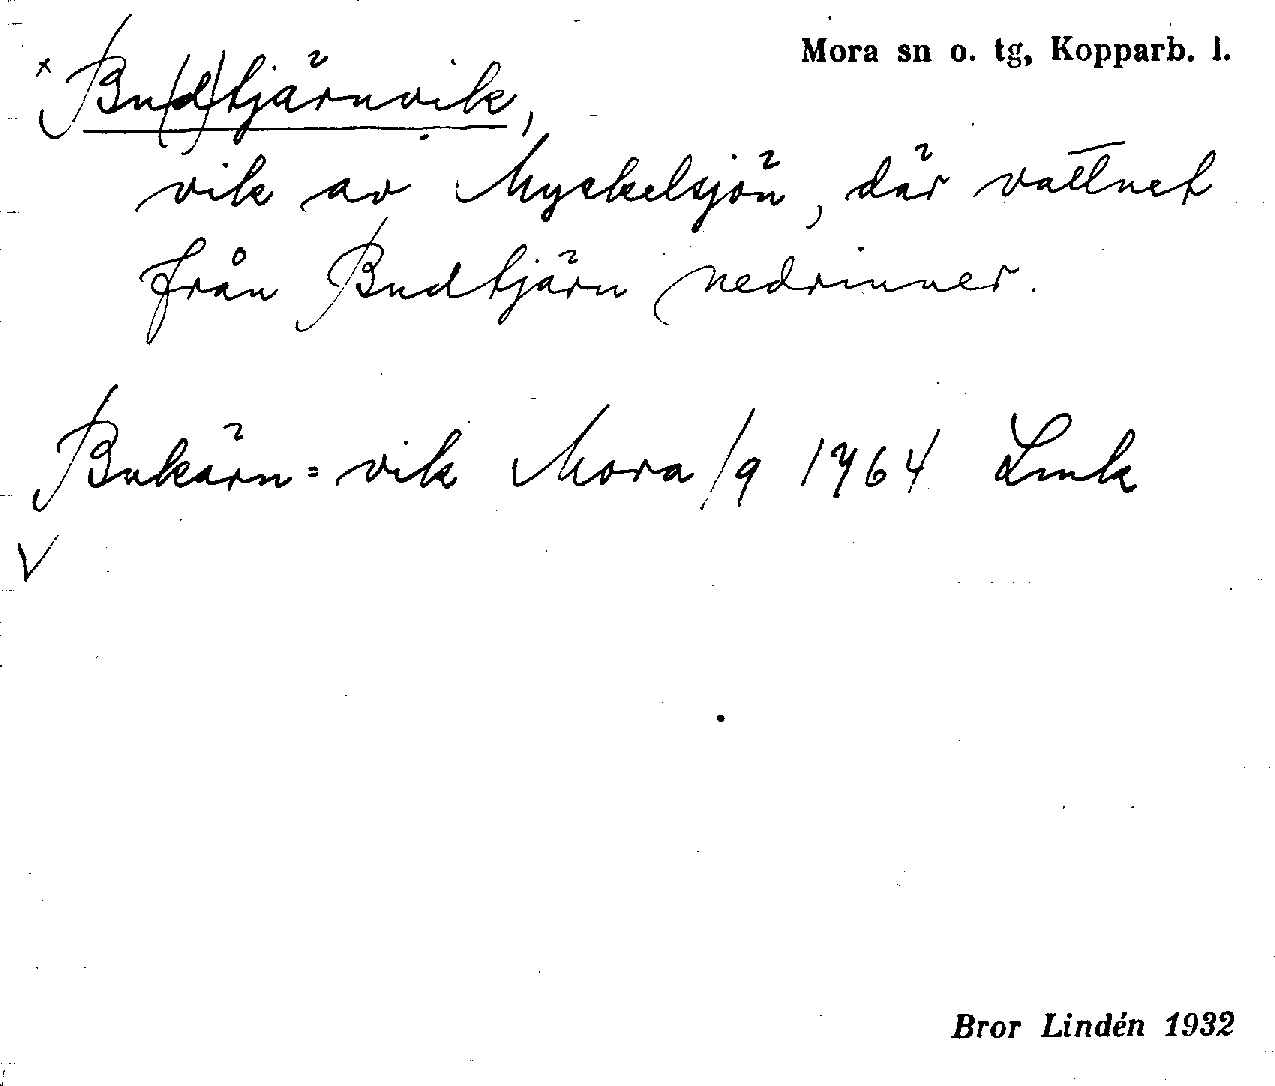 Mora sn o. tg, Kopparb. l.
x Bu(d)tjärnvik,
vik av Myckelsjön, där vattnet
från Budtjärn nedrinner.
Bukärn=vik Mora/9 1764 Lmk
V
Bror Lindén 1932